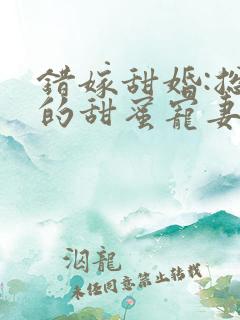 錯嫁甜婚:總
的甜蜜寵妻
泅龍
未任同意禁止転載